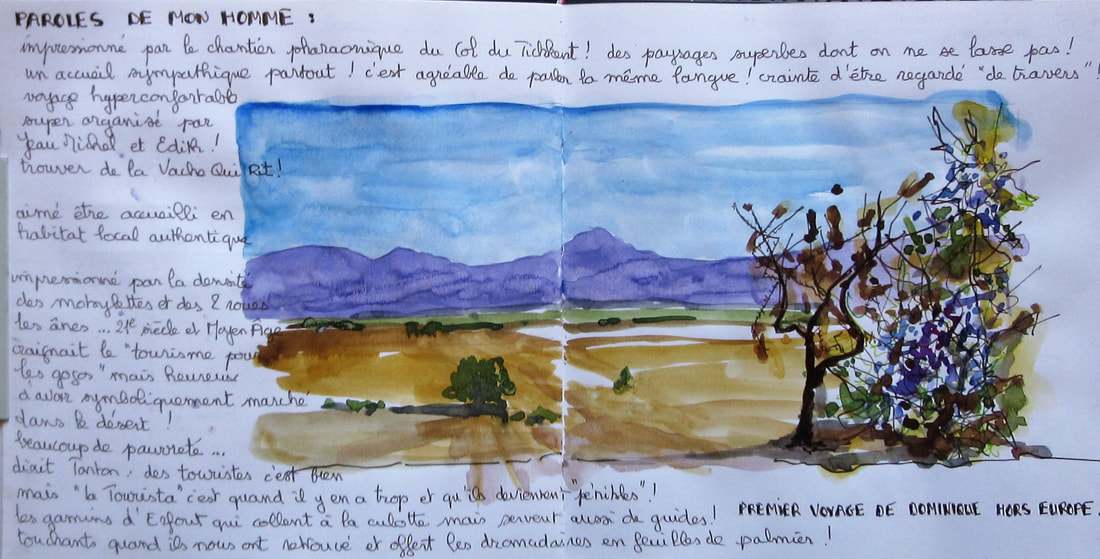 PAROLES DE MON HOMME :
impressionné par le chantier pharaonique du Col du Tichkent ! des paysages superbes dont on ne se lasse pas !
un accueil sympathique partout ! c'est agréable de parler la même langue ! crainte d'être regardé "de travers" !
voyage hyperconfortable
super organisé par
Jean Michel et Edith !
trouver de la Vache Qui Rit !
aimé être accueilli en
habitat local authentique
impressionné par la densité
des mobylettes et des 2 roues
les ânes ... 21e siècle et Moyen Age
craignait le "tourisme pour
les gogos" mais heureux
d'avoir symboliquement marché
dans le désert !
beaucoup de pauvreté ...
dirait Tonton : des touristes c'est bien
mais "la Tourista" c'est quand il y en a trop et qu'"ils deviennent pénibles" !
les gamins d'Erfout qui collent à la culotte mais servent aussi de guides !
touchants quand ils nous ont retrouvé et offert les dromadaires en feuilles de palmier !
PREMIER VOYAGE DE DOMINIQUE HORS EUROPE.